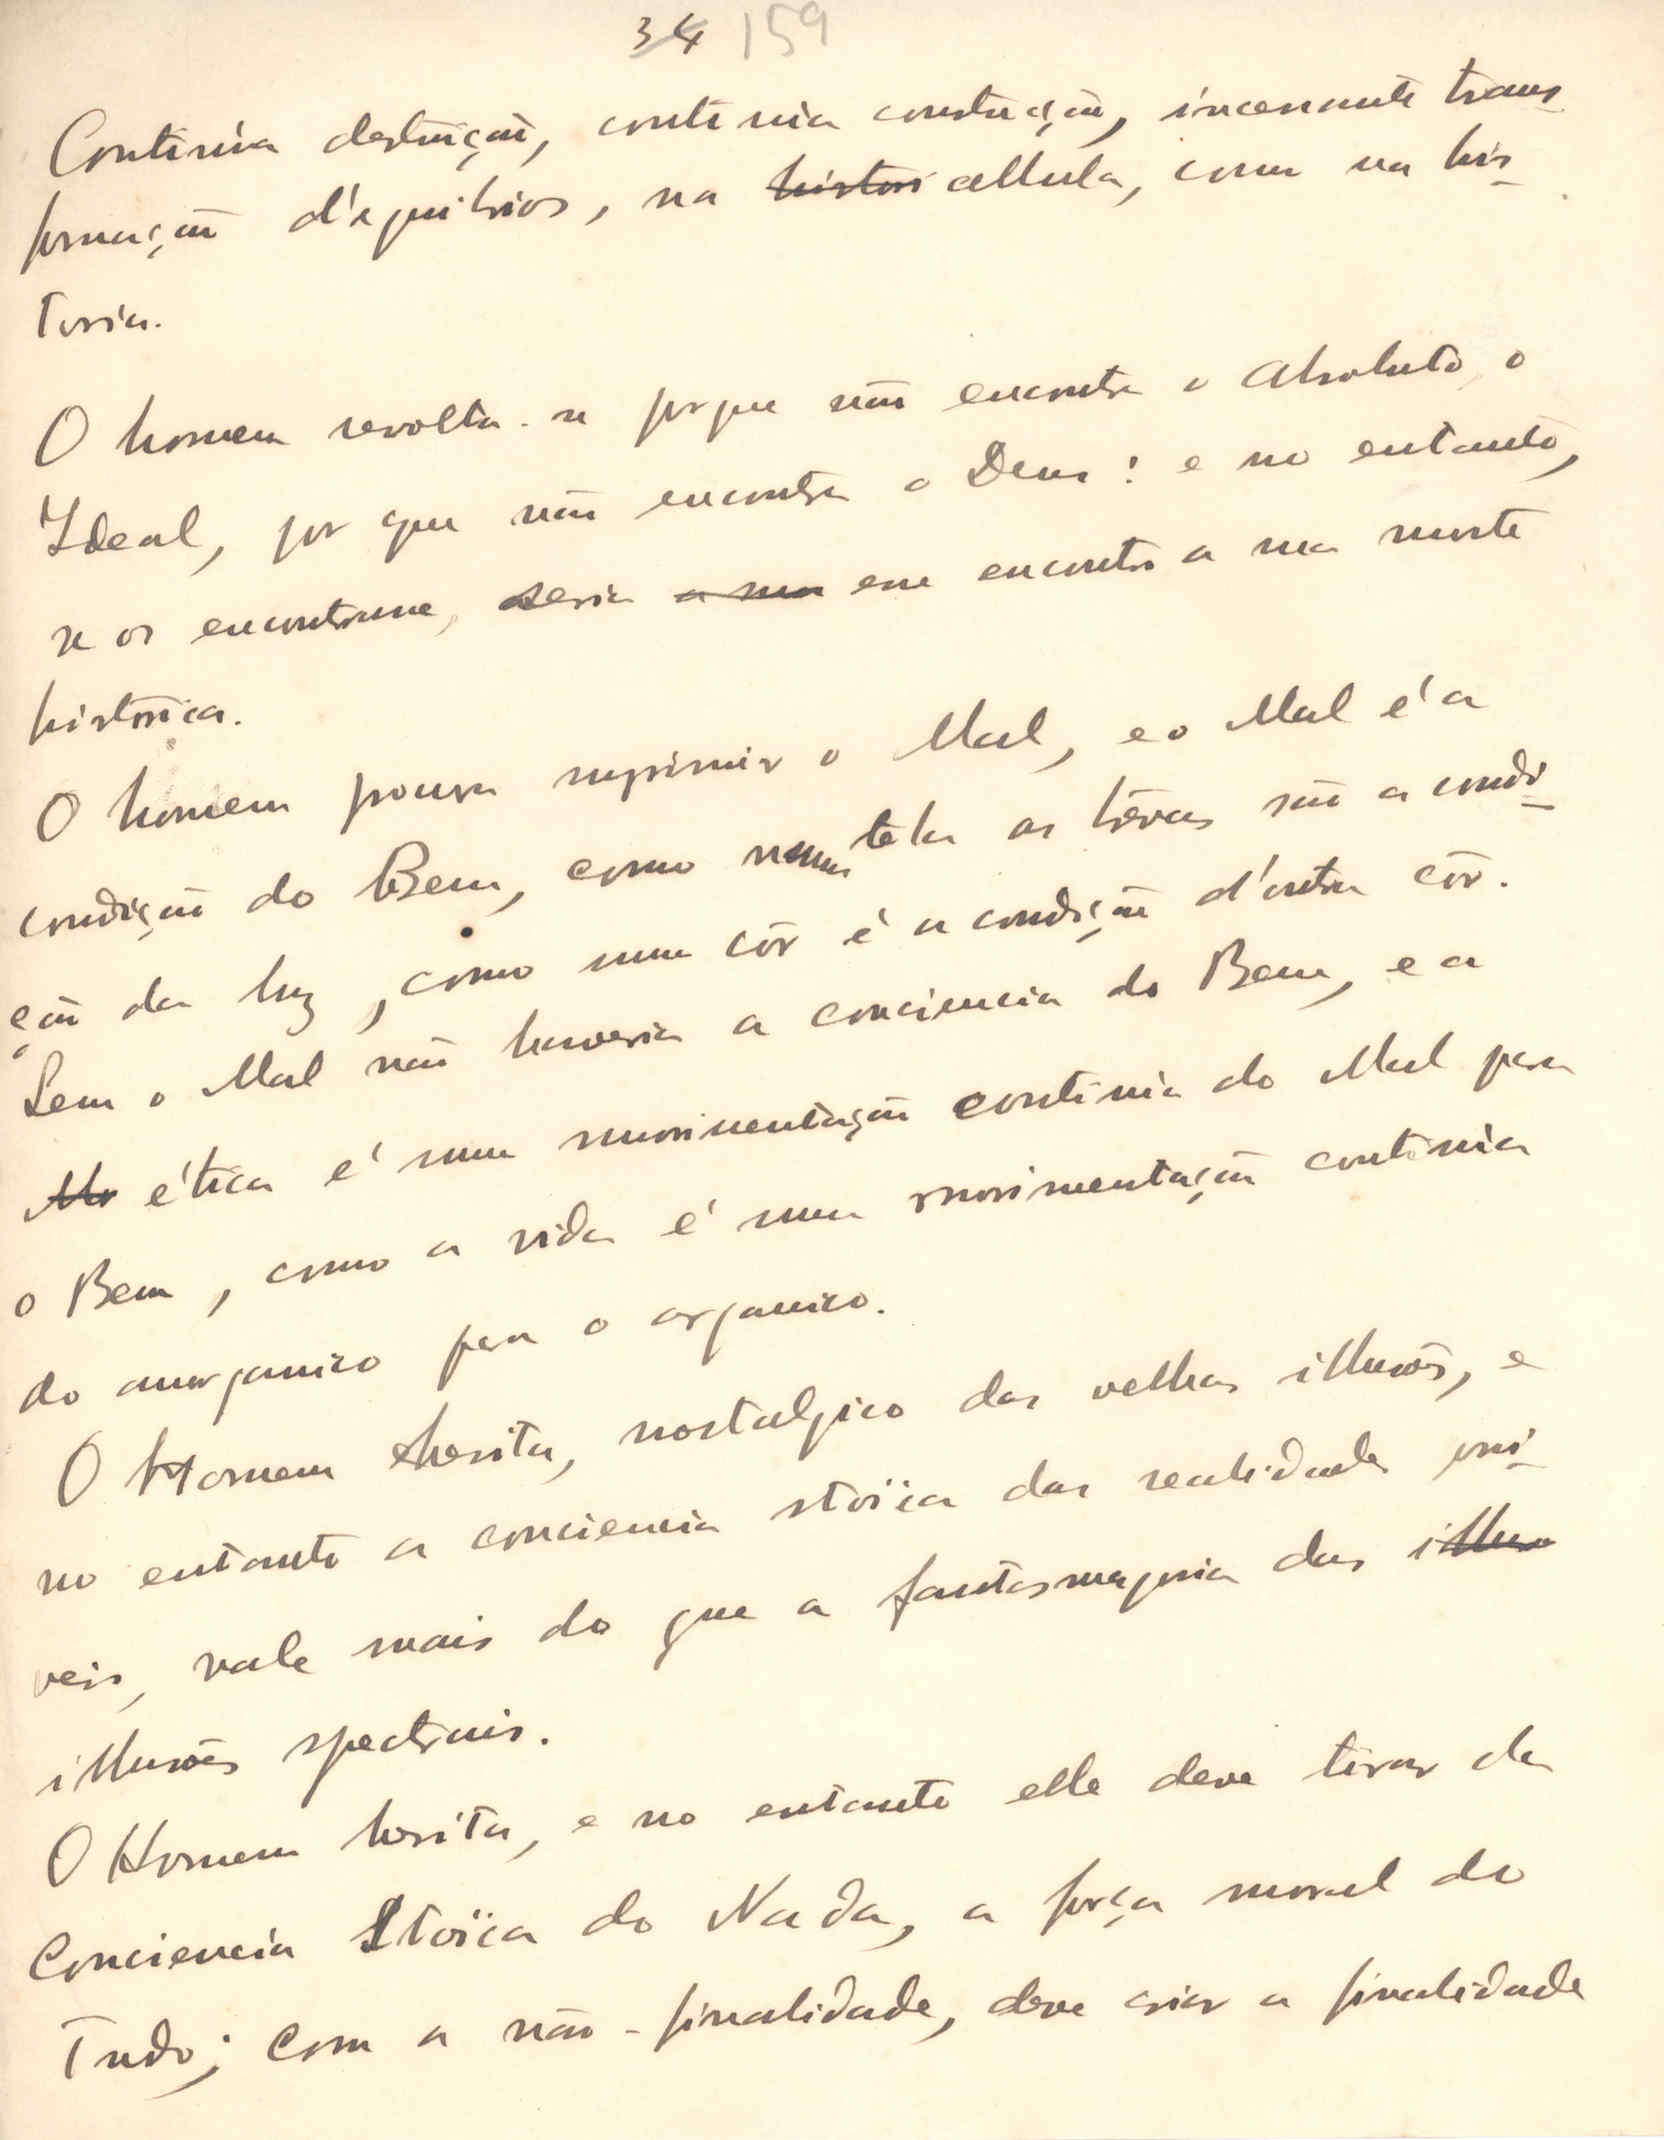 34 159
Continua destruição, continua construção, incessante trans-
formação d'equilibrios, na histori cellula, como na his-
toria.
O homem revolta-se porque não encontra o Absoluto, o
Ideal, por que não encontra o Deus: e no entanto,
se os encontrasse, seria a sua esse encontro a sua morte
historica.
O homem pensa suprimir o Mal, e o Mal é a
condição do Bem, como numa tela as trévas são a condi-
ção da luz, como uma côr é a condição d'outra côr.
Sem o Mal não haveria a conciencia do Bem, e a
Mo ética é uma movimentação continua do Mal para
o Bem, como a vida é uma movimentação continua
do anorganico para o organico.
O Homem hesita, nostalgico das velhas illusões, e
no entanto a conciencia stoïca das realidades possi-
veis, vale mais do que a fantasmagoria das illuso
illusões spectrais.
O Homem hesita, e no entanto elle deve tirar da
Conciencia Stoïca do Nada, a força moral do
Tudo; com a não-finalidade, deve criar a finalidade